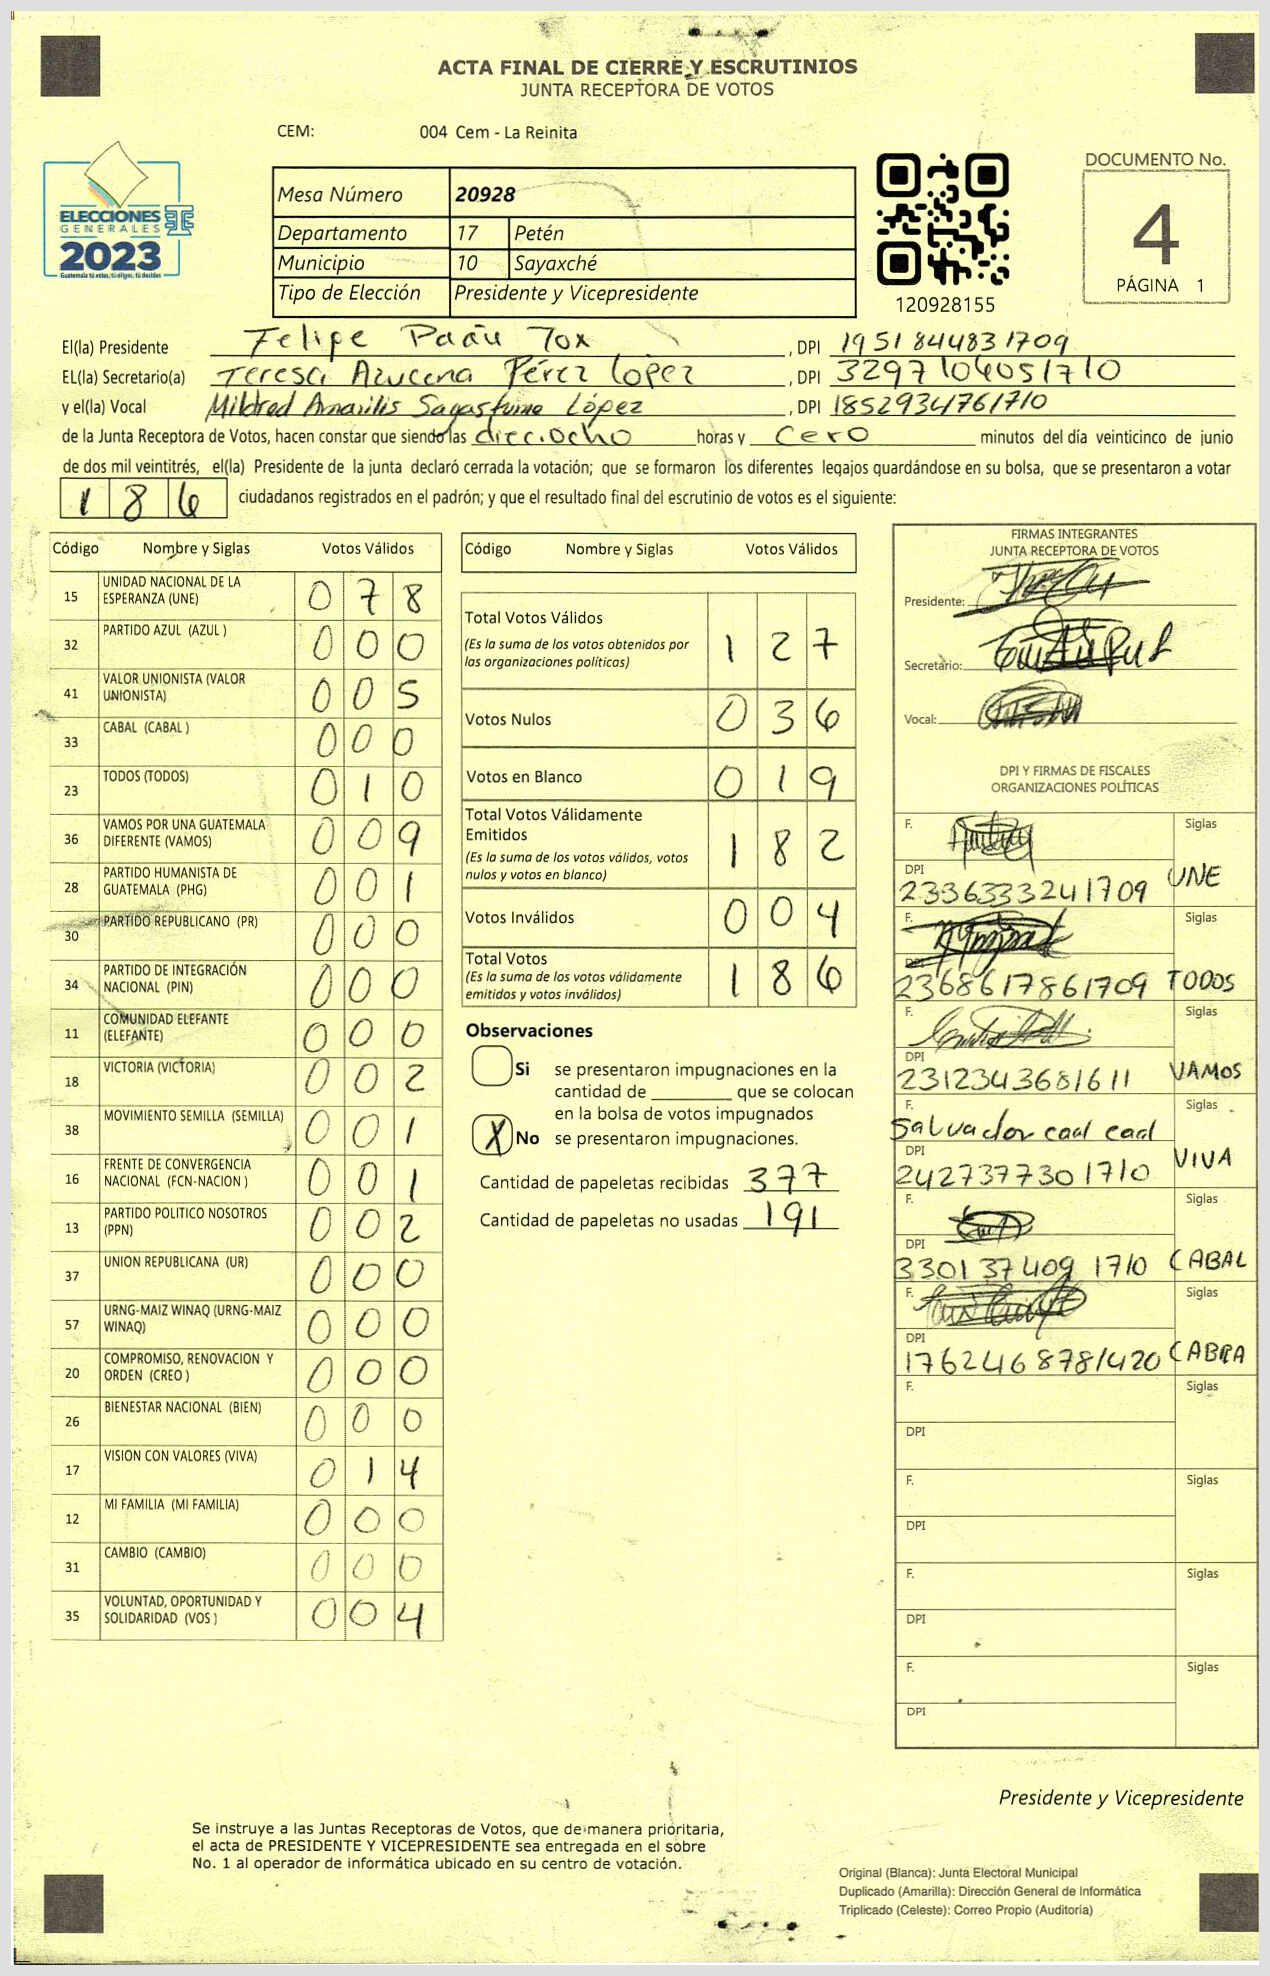 ACTA FINAL DE CIERRE Y ESCRUTINIOS
JUNTA RECEPTORA DE VOTOS
CEM: 004 Cem - La Reinita
ELECCIONES
GENERALES
2023
Guatemala tú votas, tú eliges, tú decides
Mesa Número 20928
Departamento 17 Petén
Municipio 10 Sayaxché
Tipo de Elección Presidente y Vicepresidente
120928155
DOCUMENTO No.
4
PÁGINA 1
El(la) Presidente Felipe Paau Tox, DPI 1951844831709
EL(la) Secretario(a) Teresa Azucena Pérez López, DPI 3297104051710
y el(la) Vocal Mildred Amarilis Sagastume López, DPI 1852934761710
de la Junta Receptora de Votos, hacen constar que siendo las dieciocho horas y cero minutos del día veinticinco de junio
de dos mil veintitrés, el(la) Presidente de la junta declaró cerrada la votación; que se formaron los diferentes legajos guardándose en su bolsa, que se presentaron a votar
186 ciudadanos registrados en el padrón; y que el resultado final del escrutinio de votos es el siguiente:
Código Nombre y Siglas Votos Válidos
15 UNIDAD NACIONAL DE LA ESPERANZA (UNE) 0 7 8
32 PARTIDO AZUL (AZUL ) 0 0 0
41 VALOR UNIONISTA (VALOR UNIONISTA) 0 0 5
33 CABAL (CABAL ) 0 0 0
23 TODOS (TODOS) 0 1 0
36 VAMOS POR UNA GUATEMALA DIFERENTE (VAMOS) 0 0 9
28 PARTIDO HUMANISTA DE GUATEMALA (PHG) 0 0 1
30 PARTIDO REPUBLICANO (PR) 0 0 0
34 PARTIDO DE INTEGRACIÓN NACIONAL (PIN) 0 0 0
11 COMUNIDAD ELEFANTE (ELEFANTE) 0 0 0
18 VICTORIA (VICTORIA) 0 0 2
38 MOVIMIENTO SEMILLA (SEMILLA) 0 0 1
16 FRENTE DE CONVERGENCIA NACIONAL (FCN-NACION ) 0 0 1
13 PARTIDO POLITICO NOSOTROS (PPN) 0 0 2
37 UNION REPUBLICANA (UR) 0 0 0
57 URNG-MAIZ WINAQ (URNG-MAIZ WINAQ) 0 0 0
20 COMPROMISO, RENOVACION Y ORDEN (CREO ) 0 0 0
26 BIENESTAR NACIONAL (BIEN) 0 0 0
17 VISION CON VALORES (VIVA) 0 1 4
12 MI FAMILIA (MI FAMILIA) 0 0 0
31 CAMBIO (CAMBIO) 0 0 0
35 VOLUNTAD, OPORTUNIDAD Y SOLIDARIDAD (VOS ) 0 0 4
Código Nombre y Siglas Votos Válidos
Total Votos Válidos 1 2 7
(Es la suma de los votos obtenidos por las organizaciones políticas)
Votos Nulos 0 3 6
Votos en Blanco 0 1 9
Total Votos Válidamente Emitidos 1 8 2
(Es la suma de los votos válidos, votos nulos y votos en blanco)
Votos Inválidos 0 0 4
Total Votos 1 8 6
(Es la suma de los votos válidamente emitidos y votos inválidos)
Observaciones
Si se presentaron impugnaciones en la
cantidad de ________ que se colocan
en la bolsa de votos impugnados
X No se presentaron impugnaciones.
Cantidad de papeletas recibidas 377
Cantidad de papeletas no usadas 191
FIRMAS INTEGRANTES
JUNTA RECEPTORA DE VOTOS
Presidente:
Secretario:
Vocal:
DPI Y FIRMAS DE FISCALES
ORGANIZACIONES POLÍTICAS
F. Siglas
DPI 2336333241709 UNE
F. Siglas
DPI 2368617861709 TODOS
F. Siglas
DPI 2312343681611 VAMOS
F. Salvador caal caal Siglas
DPI 2427377301710 VIVA
F. Siglas
DPI 3301374091710 CABAL
F. Siglas
DPI 1762468781420 CABRA
F. Siglas
DPI
F. Siglas
DPI
F. Siglas
DPI
F. Siglas
DPI
Presidente y Vicepresidente
Se instruye a las Juntas Receptoras de Votos, que de manera prioritaria,
el acta de PRESIDENTE Y VICEPRESIDENTE sea entregada en el sobre
No. 1 al operador de informática ubicado en su centro de votación.
Original (Blanca): Junta Electoral Municipal
Duplicado (Amarilla): Dirección General de Informática
Triplicado (Celeste): Correo Propio (Auditoria)